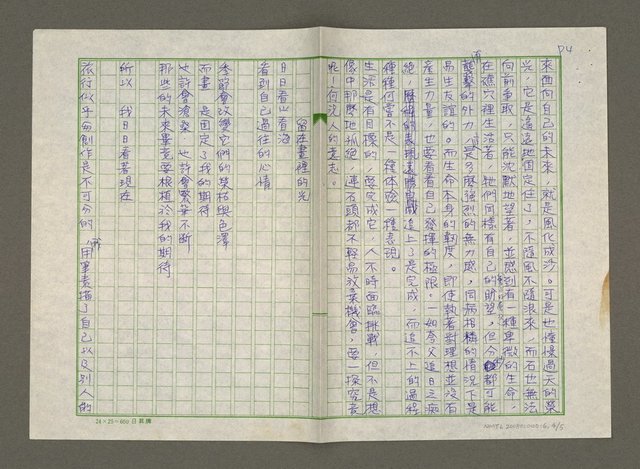 P.4
來面向自己的未來,就是風化成沙。可是也憧憬過天的榮
光,它是遠遠地固定住了,不隨風不隨浪來,而石也無法
向前重取,只能沈默地望著,並感到有一種卑微的生命,
在進穴裡生活著,牠們同樣有自己的盼望,但今都可能
的外力,這是多麼強烈的無力感,同病相憐的情況下是
易生友誼的。而生命本身的韌度,即使執著對理想並沒有
產生力量,也要看看自己發揮的極限,一如夸父追日之痴
絕,追上了是完成,而追不上的過程
種種何嘗不是一種体驗,一種表現。
生活是有目標的,要完成它,人不時面臨挑戰,但不是想
像中那麼地孤絕,連石頭都不輕易放棄機會,要一探究竟
呢!何況人的意志。
留在畫裡的光
日日看山看海
看到自己過往的心情
季節會改變它們的榮枯與色澤
而畫 是固定了我的期待
也許會滄桑 也許會繁華不斷
那些的未來畢竟要根植於我的期待
所以 我日日看著現在
旅行似乎會創作是不可分的,用筆素描了自己以及別人的
24×25=600 日興牌